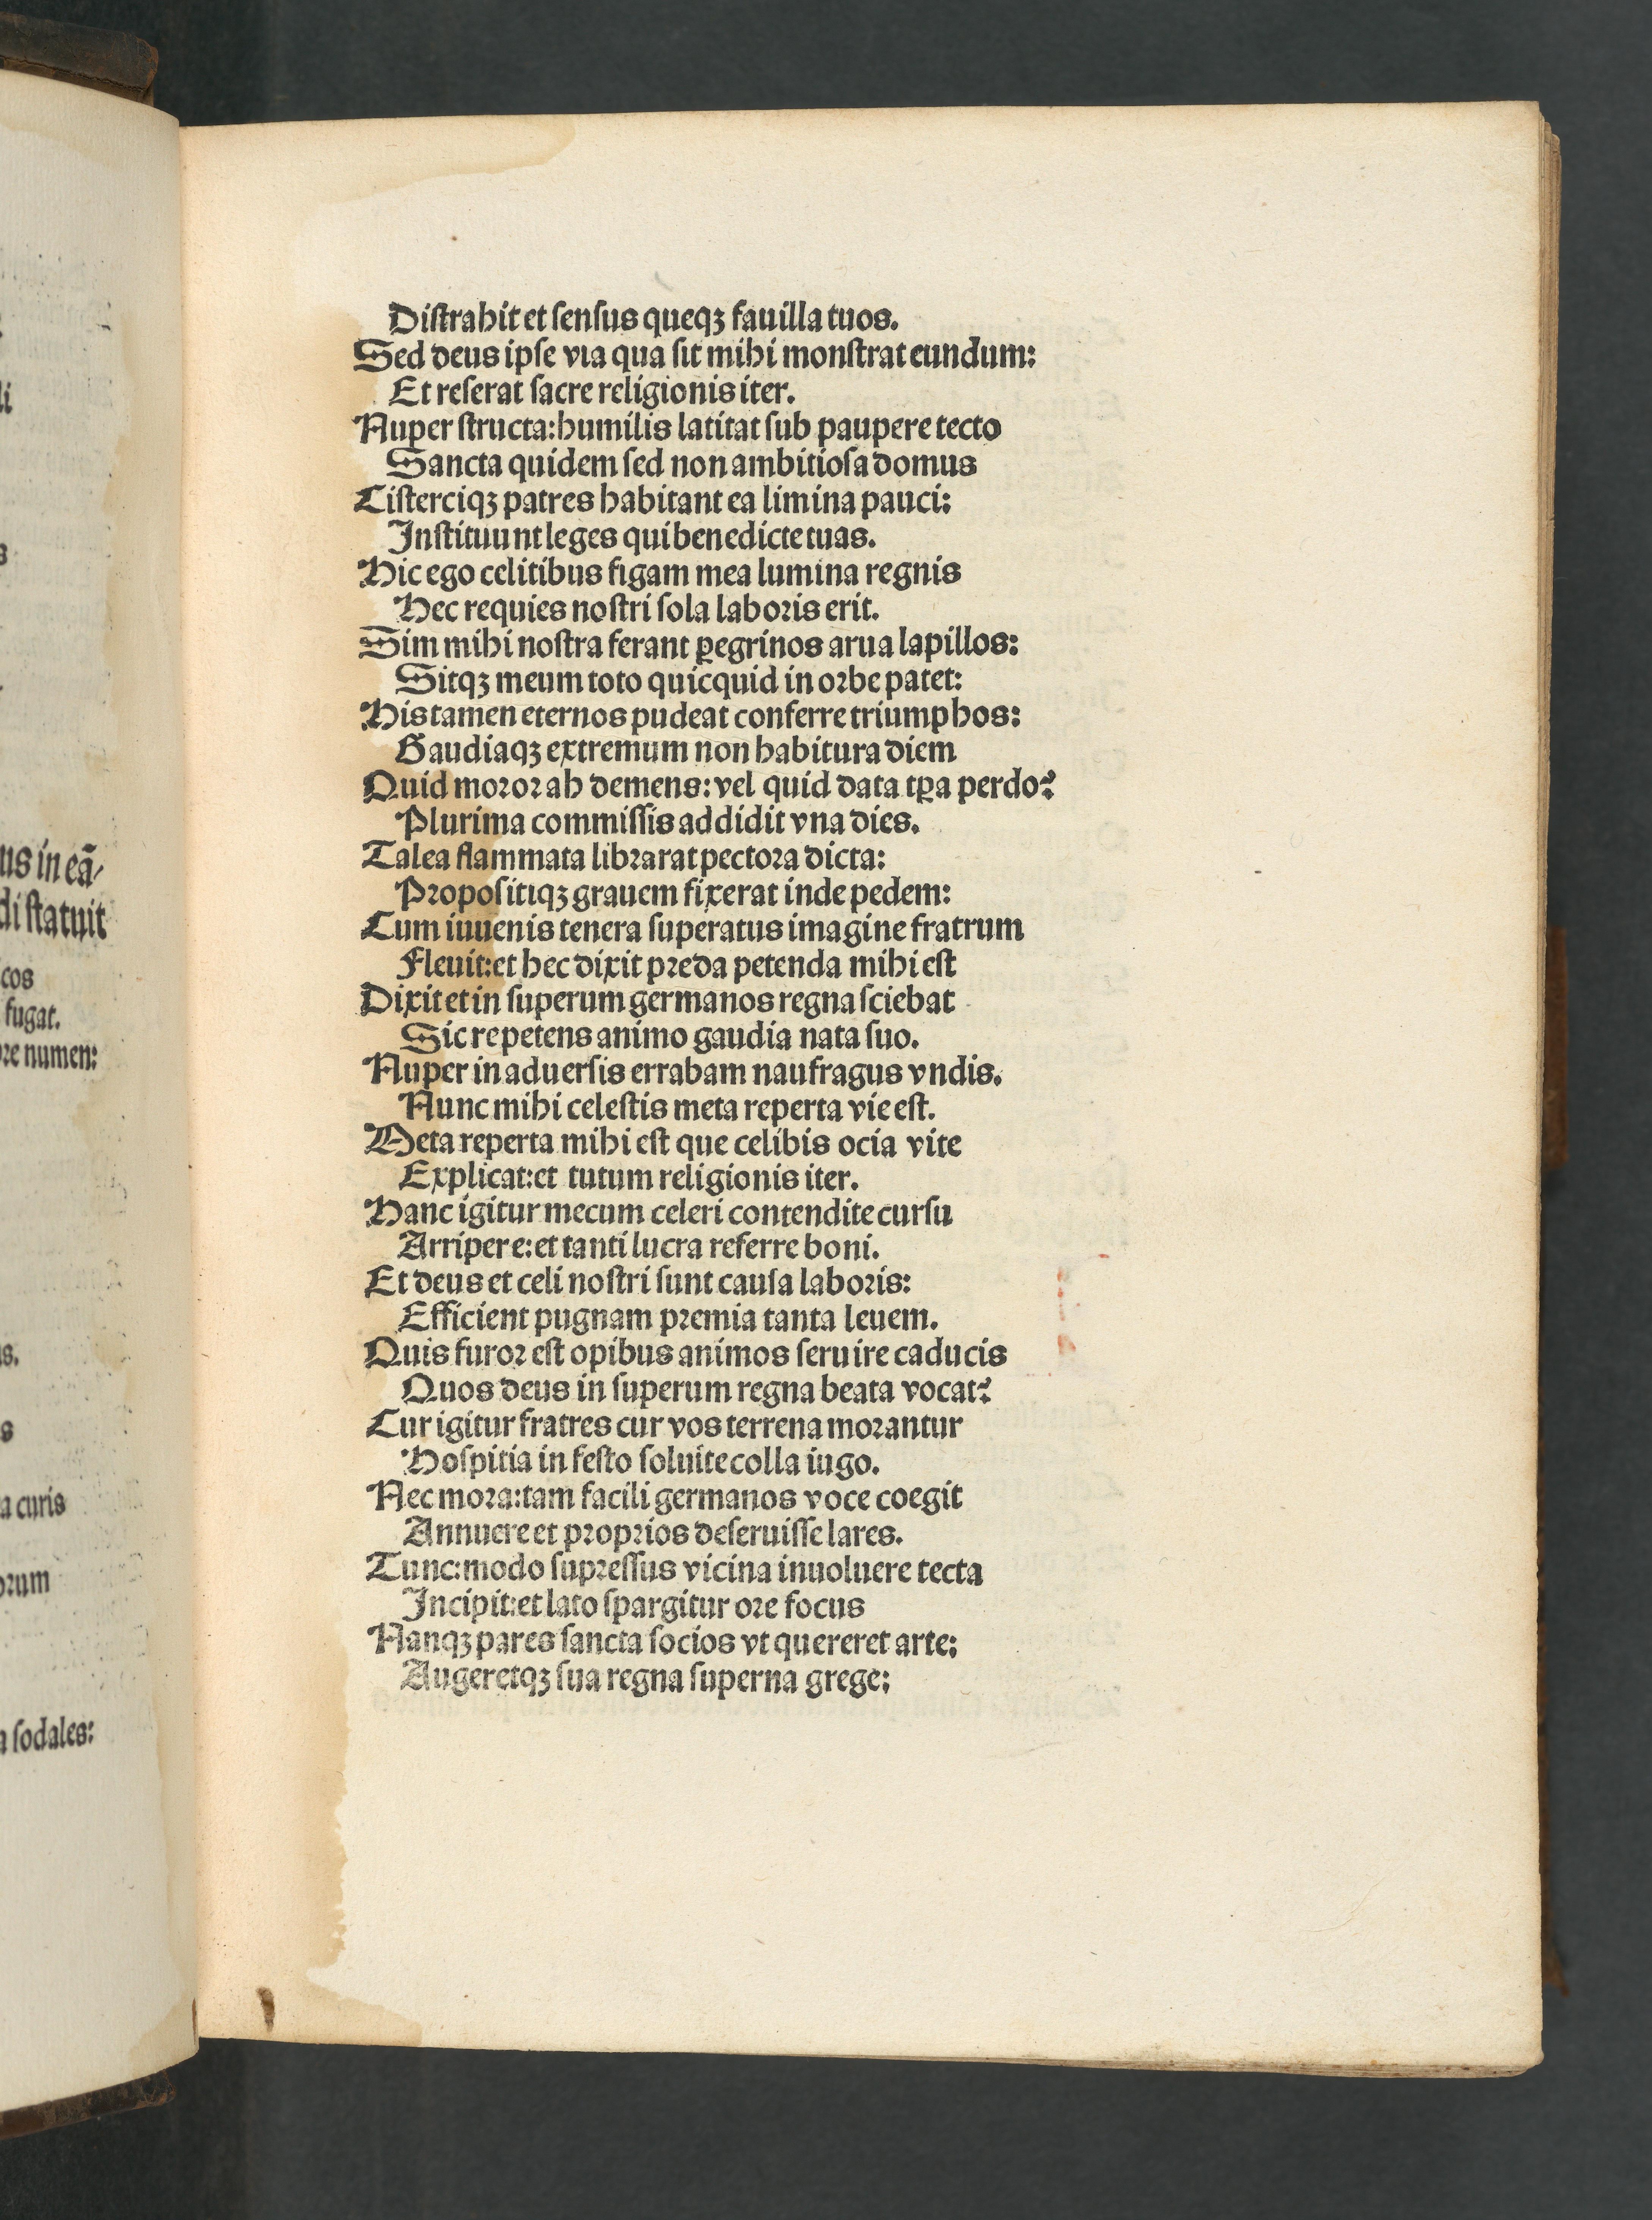 li
s
us in eā/
di statuit
cos
fugat.
ore numen:
us.
s
a curis
orum
a sodales:
Diſtrahit et ſenſus queqꝫ fauilla tuos.
Sed deus ipſe via qua ſit mihi monſtrat eundum:
Et reſerat ſacre religionis iter.
Nuper ſtructa: humilis latitat ſub paupere tecto
Sancta quidem ſed non ambitioſa domus
Ciſterciqꝫ patres habitant ea limina pauci:
Inſtituunt leges qui benedicte tuas.
Hic ego celitibus figam mea lumina regnis
Hec requies noſtri ſola laboris erit.
Sim mihi noſtra ferant ꝑegrinos arua lapillos:
Sitqꝫ meum toto quicquid in orbe patet:
His tamen eternos pudeat conferre triumphos:
Gaudiaqꝫ extremum non habitura diem
Quid moror ah demens: vel quid data tꝑa perdo?
Plurima commiſſis addidit vna dies.
Talea flammata librarat pectora dicta:
Propoſitiqꝫ grauem fixerat inde pedem:
Cum iuuenis tenera ſuperatus imagine fratrum
Fleuit: et hec dixit preda petenda mihi eſt
Dixit et in ſuperum germanos regna ſciebat
Sic repetens animo gaudia nata ſuo.
Nuper in aduerſis errabam naufragus vndis.
Nunc mihi celeſtis meta reperta vie eſt.
Meta reperta mihi eſt que celibis ocia vite
Explicat: et tutum religionis iter.
Hanc igitur mecum celeri contendite curſu
Arripere: et tanti lucra referre boni.
Et deus et celi noſtri ſunt cauſa laboris:
Efficient pugnam premia tanta leuem.
Quis furor eſt opibus animos ſeruire caducis
Quos deus in ſuperum regna beata vocat?
Cur igitur fratres cur vos terrena morantur
Hoſpitia in feſto ſoluite colla iugo.
Nec mora: tam facili germanos voce coegit
Annuere et proprios deſeruiſſe lares.
Tunc: modo ſupreſſus vicina inuoluere tecta
Incipit: et lato ſpargitur ore focus
Nanqꝫ pares ſancta ſocios vt quereret arte;
Augeretqꝫ ſua regna ſuperna grege;